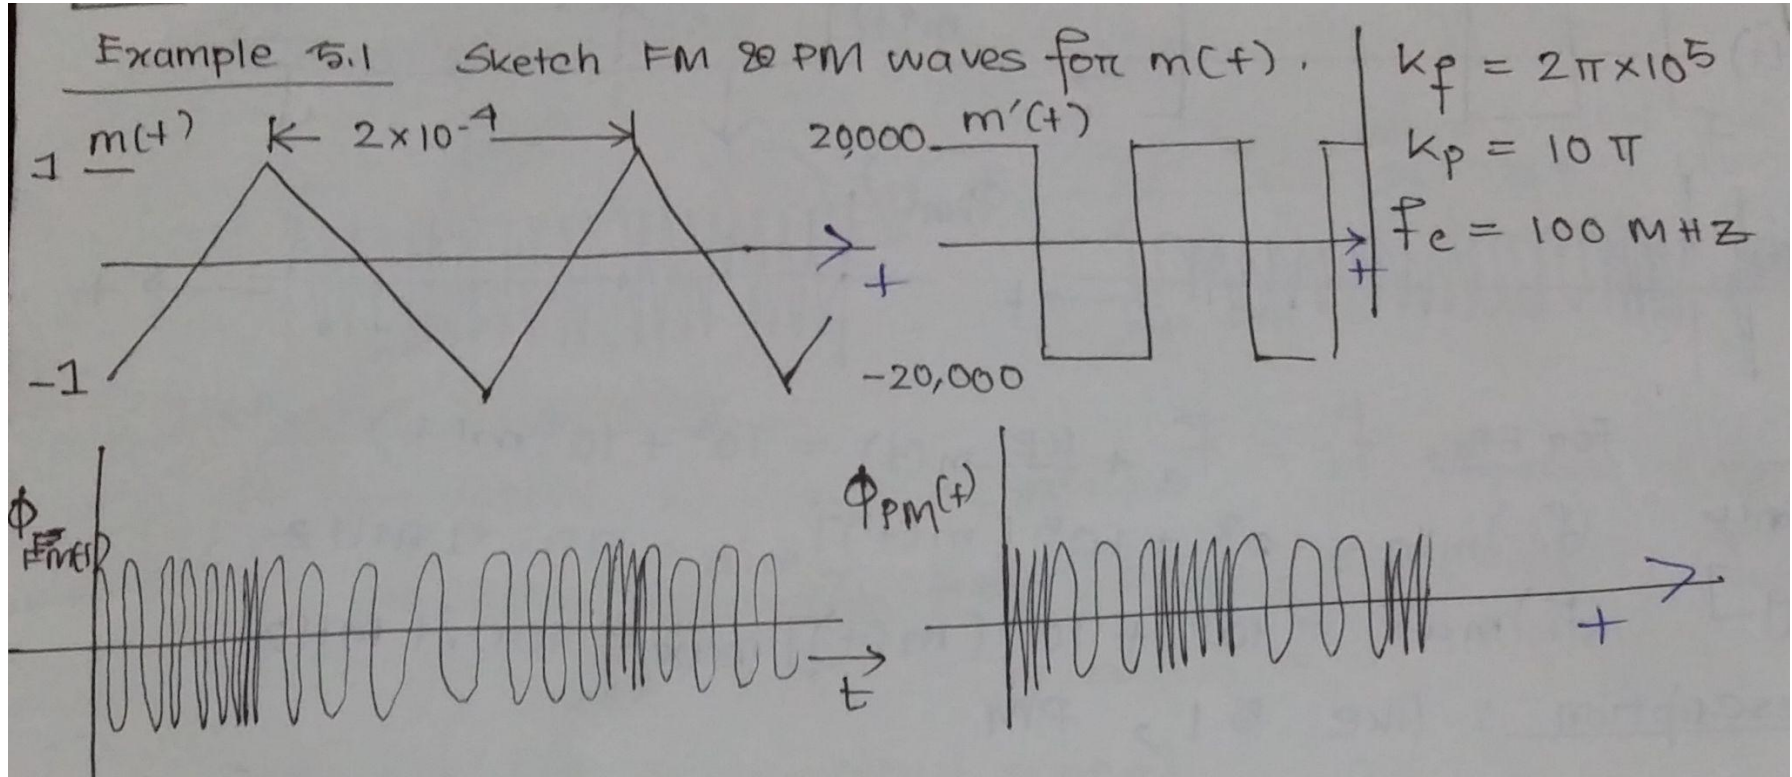 Example 5.1 Sketch FM & PM waves for m(t).
kf = 2π×10^5
kp = 10π
fc = 100 MHz
m(t)
2×10^-4
1
-1
t
m'(t)
20,000
-20,000
t
φFM(t)
t
φPM(t)
t